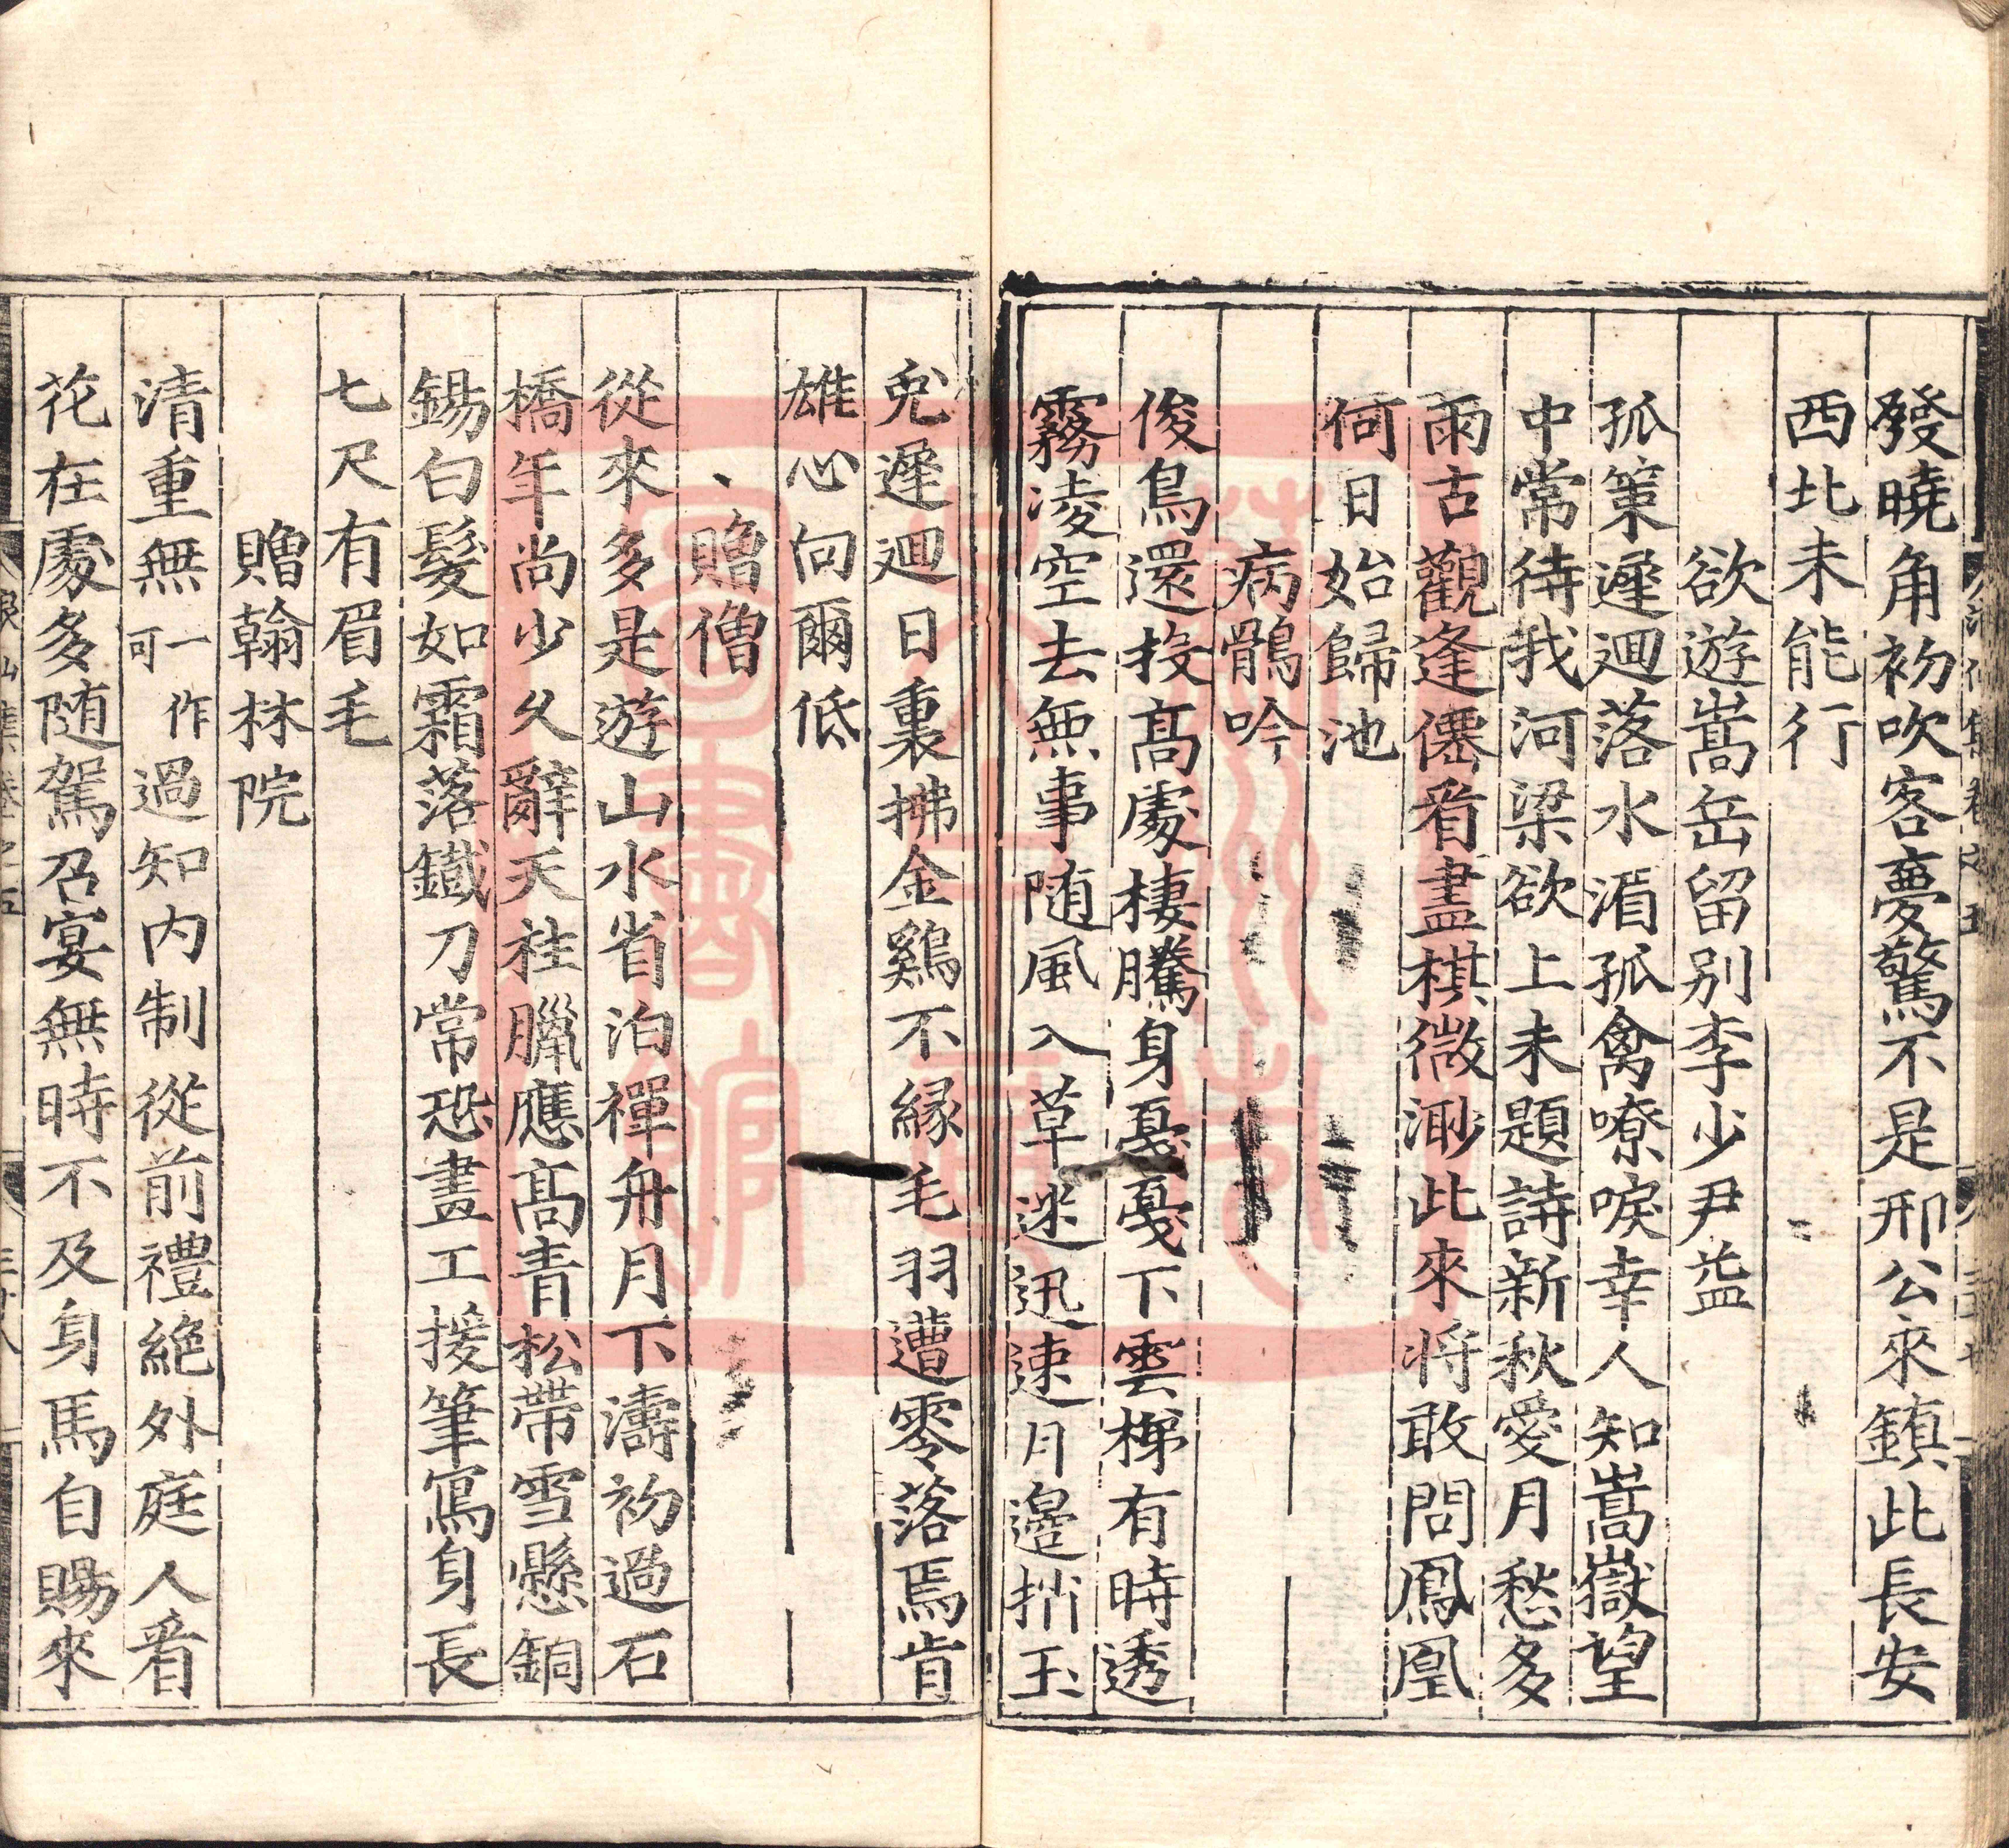 發曉角初吹客夢驚不是邢公來鎮此長安
西北未能行
欲遊嵩岳留别李少尹益
孤策遲迴落水湄孤禽嘹唳幸人知嵩嶽望
中常待我河梁欲上未題詩新秋愛月愁多
雨古觀逢僊看盡棋微渺此來将敢問鳳凰
何日始歸池
病鶻吟
俊鳥還投高處棲騰身戞戞下雲梯有時透
霧凌空去無事随風入草迷迅速月邊捎玉
兎遲迴日裏拂金鷄不縁毛羽遭零落焉肯
雄心向爾低
贈僧
從來多是遊山水省泊禪舟月下濤初過石
橋年尚少久辭天柱臘應高青松帶雪懸銅
錫白髮如霜落鐵刀常恐畫工援筆寫身長
七尺有眉毛
贈翰林院
清重無一作可過知内制從前禮絶外庭人看
花在處多随駕召宴無時不及身馬自賜來